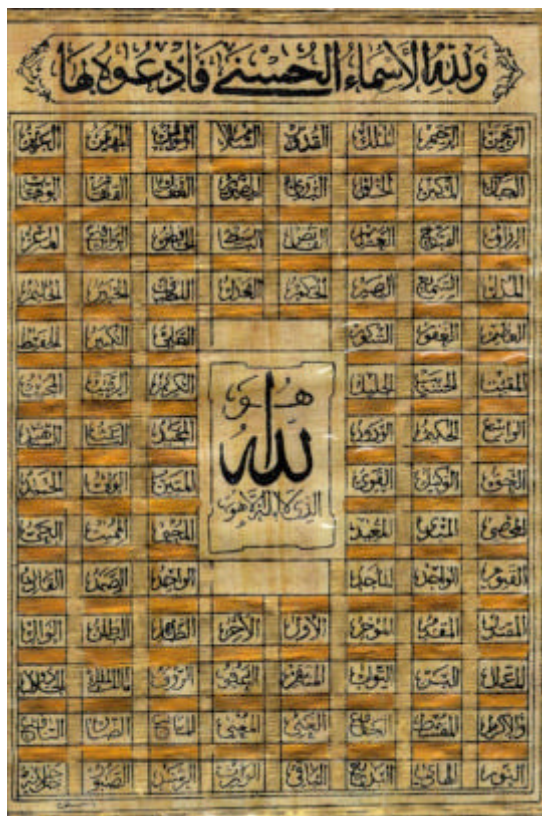 ولله الأسماء الحسنى فادعوه بها
الرحمن الرحيم الملك القدوس السلام المؤمن المهيمن العزيز
الجبار المتكبر الخالق البارئ المصور الغفار القهار الوهاب
الرزاق الفتاح العليم القابض الباسط الخافض الرافع المعز
المذل السميع البصير الحكم العدل اللطيف الخبير الحليم
العظيم الغفور الشكور العلي الكبير الحفيظ
المقيت الحسيب الجليل الكريم الرقيب المجيب
هو
الواسع الحكيم الودود المجيد الباعث الشهيد
الله
الحق الوكيل القوي المتين الولي الحميد
الذي لا إله إلا هو
المحصي المبدئ المعيد المحيي المميت الحي
القيوم الواجد الماجد الواحد الصمد القادر
المقتدر المقدم المؤخر الأول الآخر الظاهر الباطن الوالي
المتعال البر التواب المنتقم العفو الرؤوف مالك الملك ذو الجلال
والإكرام المقسط الجامع الغني المغني المانع الضار النافع
النور الهادي البديع الباقي الوارث الرشيد الصبور جل جلاله